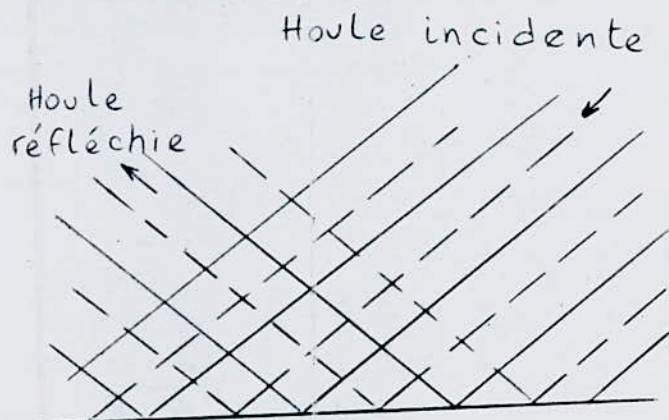 Houle incidente
Houle
réfléchie